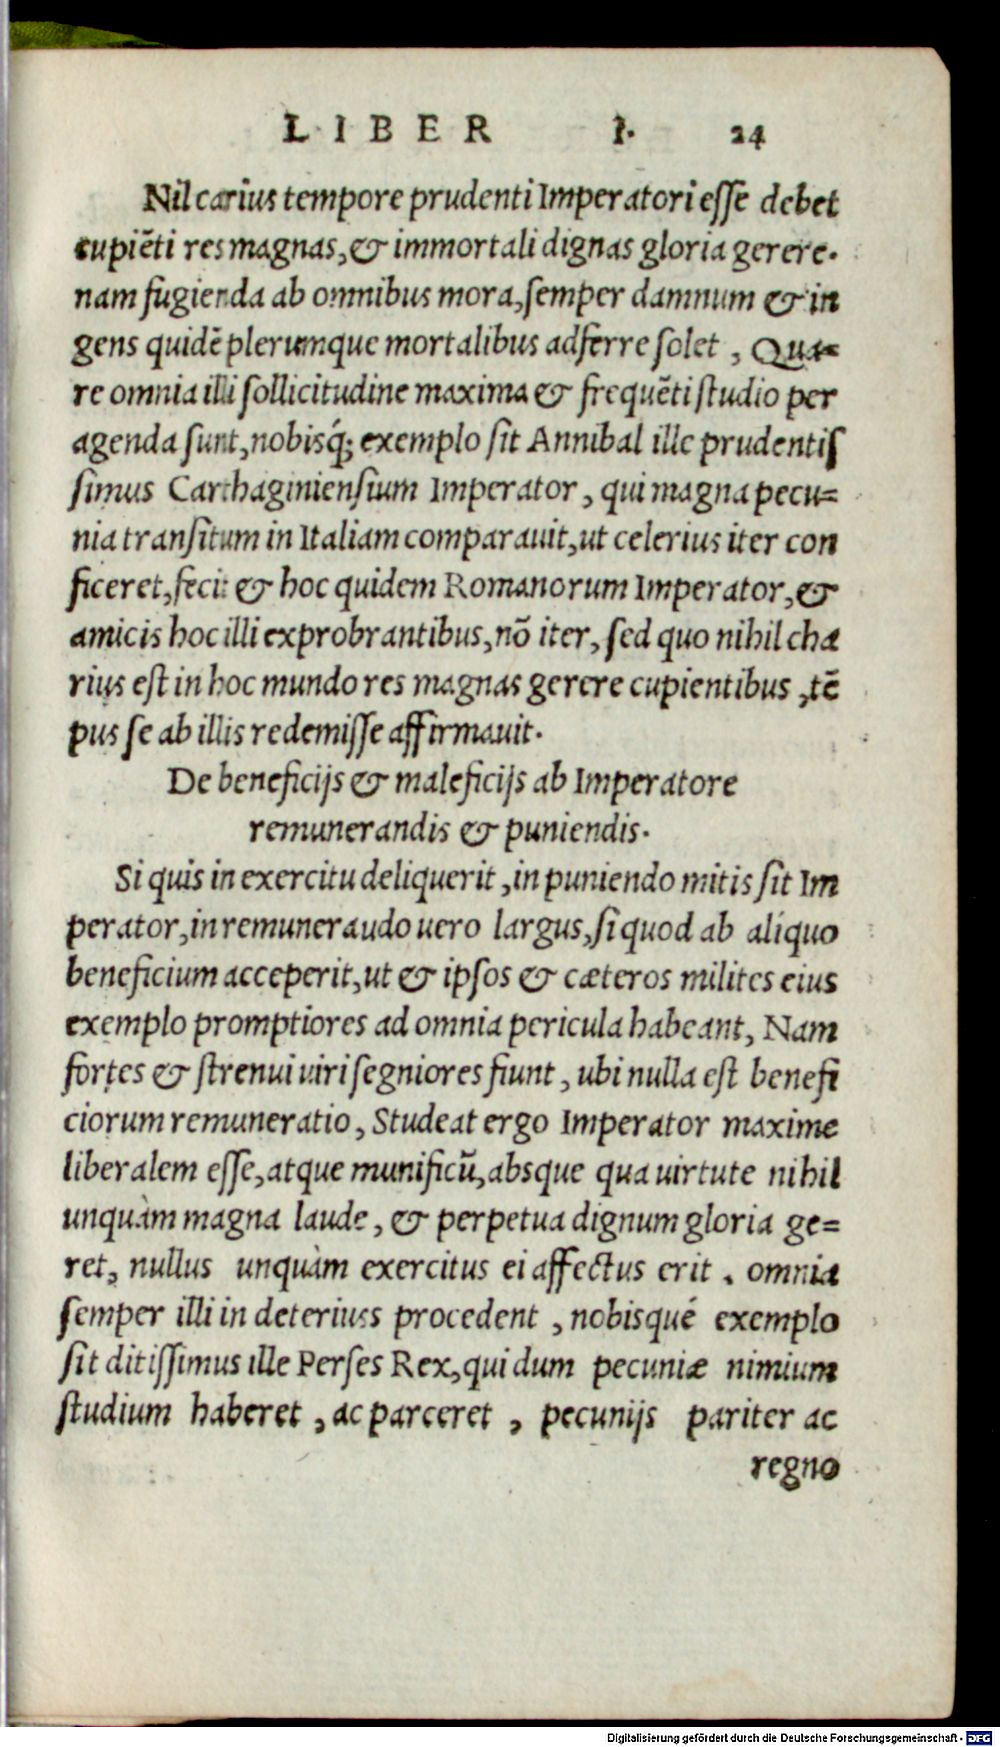 LIBER I. 24
Nil carius tempore prudenti Imperatori esse debet
cupiẽti res magnas, & immortali dignas gloria gerere.
nam fugienda ab omnibus mora, semper damnum & in
gens quidẽ plerumque mortalibus adferre solet, Qua=
re omnia illi sollicitudine maxima & frequẽti studio per
agenda sunt, nobisq́; exemplo sit Annibal ille prudentis
simus Carthaginiensium Imperator, qui magna pecu=
nia transitum in Italiam comparauit, ut celerius iter con
ficeret, fecit & hoc quidem Romanorum Imperator, &
amicis hoc illi exprobrantibus, nõ iter, sed quo nihil cha
rius est in hoc mundo res magnas gerere cupientibus, tẽ
pus se ab illis redemisse affirmauit.
De beneficijs & maleficijs ab Imperatore
remunerandis & puniendis.
Si quis in exercitu deliquerit, in puniendo mitis sit Im
perator, in remuneraudo uero largus, si quod ab aliquo
beneficium acceperit, ut & ipsos & cæteros milites eius
exemplo promptiores ad omnia pericula habeant, Nam
fortes & strenui uiri segniores fiunt, ubi nulla est benefi
ciorum remuneratio, Studeat ergo Imperator maxime
liberalem esse, atque munificũ, absque qua uirtute nihil
unquàm magna laude, & perpetua dignum gloria ge=
ret, nullus unquàm exercitus ei affectus erit, omnia
semper illi in deterius procedent, nobisqué exemplo
sit ditissimus ille Perses Rex, qui dum pecuniæ nimium
studium haberet, ac parceret, pecunijs pariter ac
regno
Digitalisierung gefördert durch die Deutsche Forschungsgemeinschaft - DFG